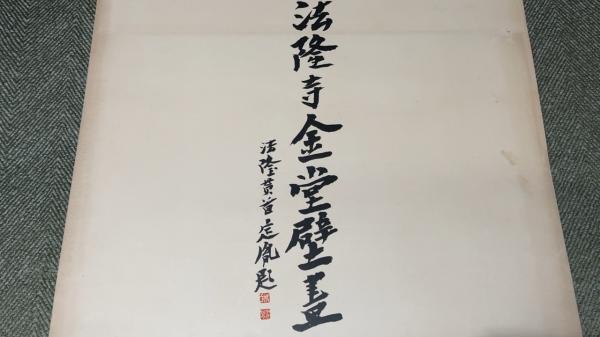 法隆寺金堂壁畫
法隆貫首定胤題